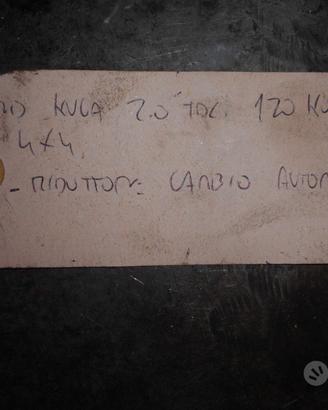 KUGA 2.0 TDC. 120 KW
4x4
- RIDUTTORE CAMBIO AUTOM